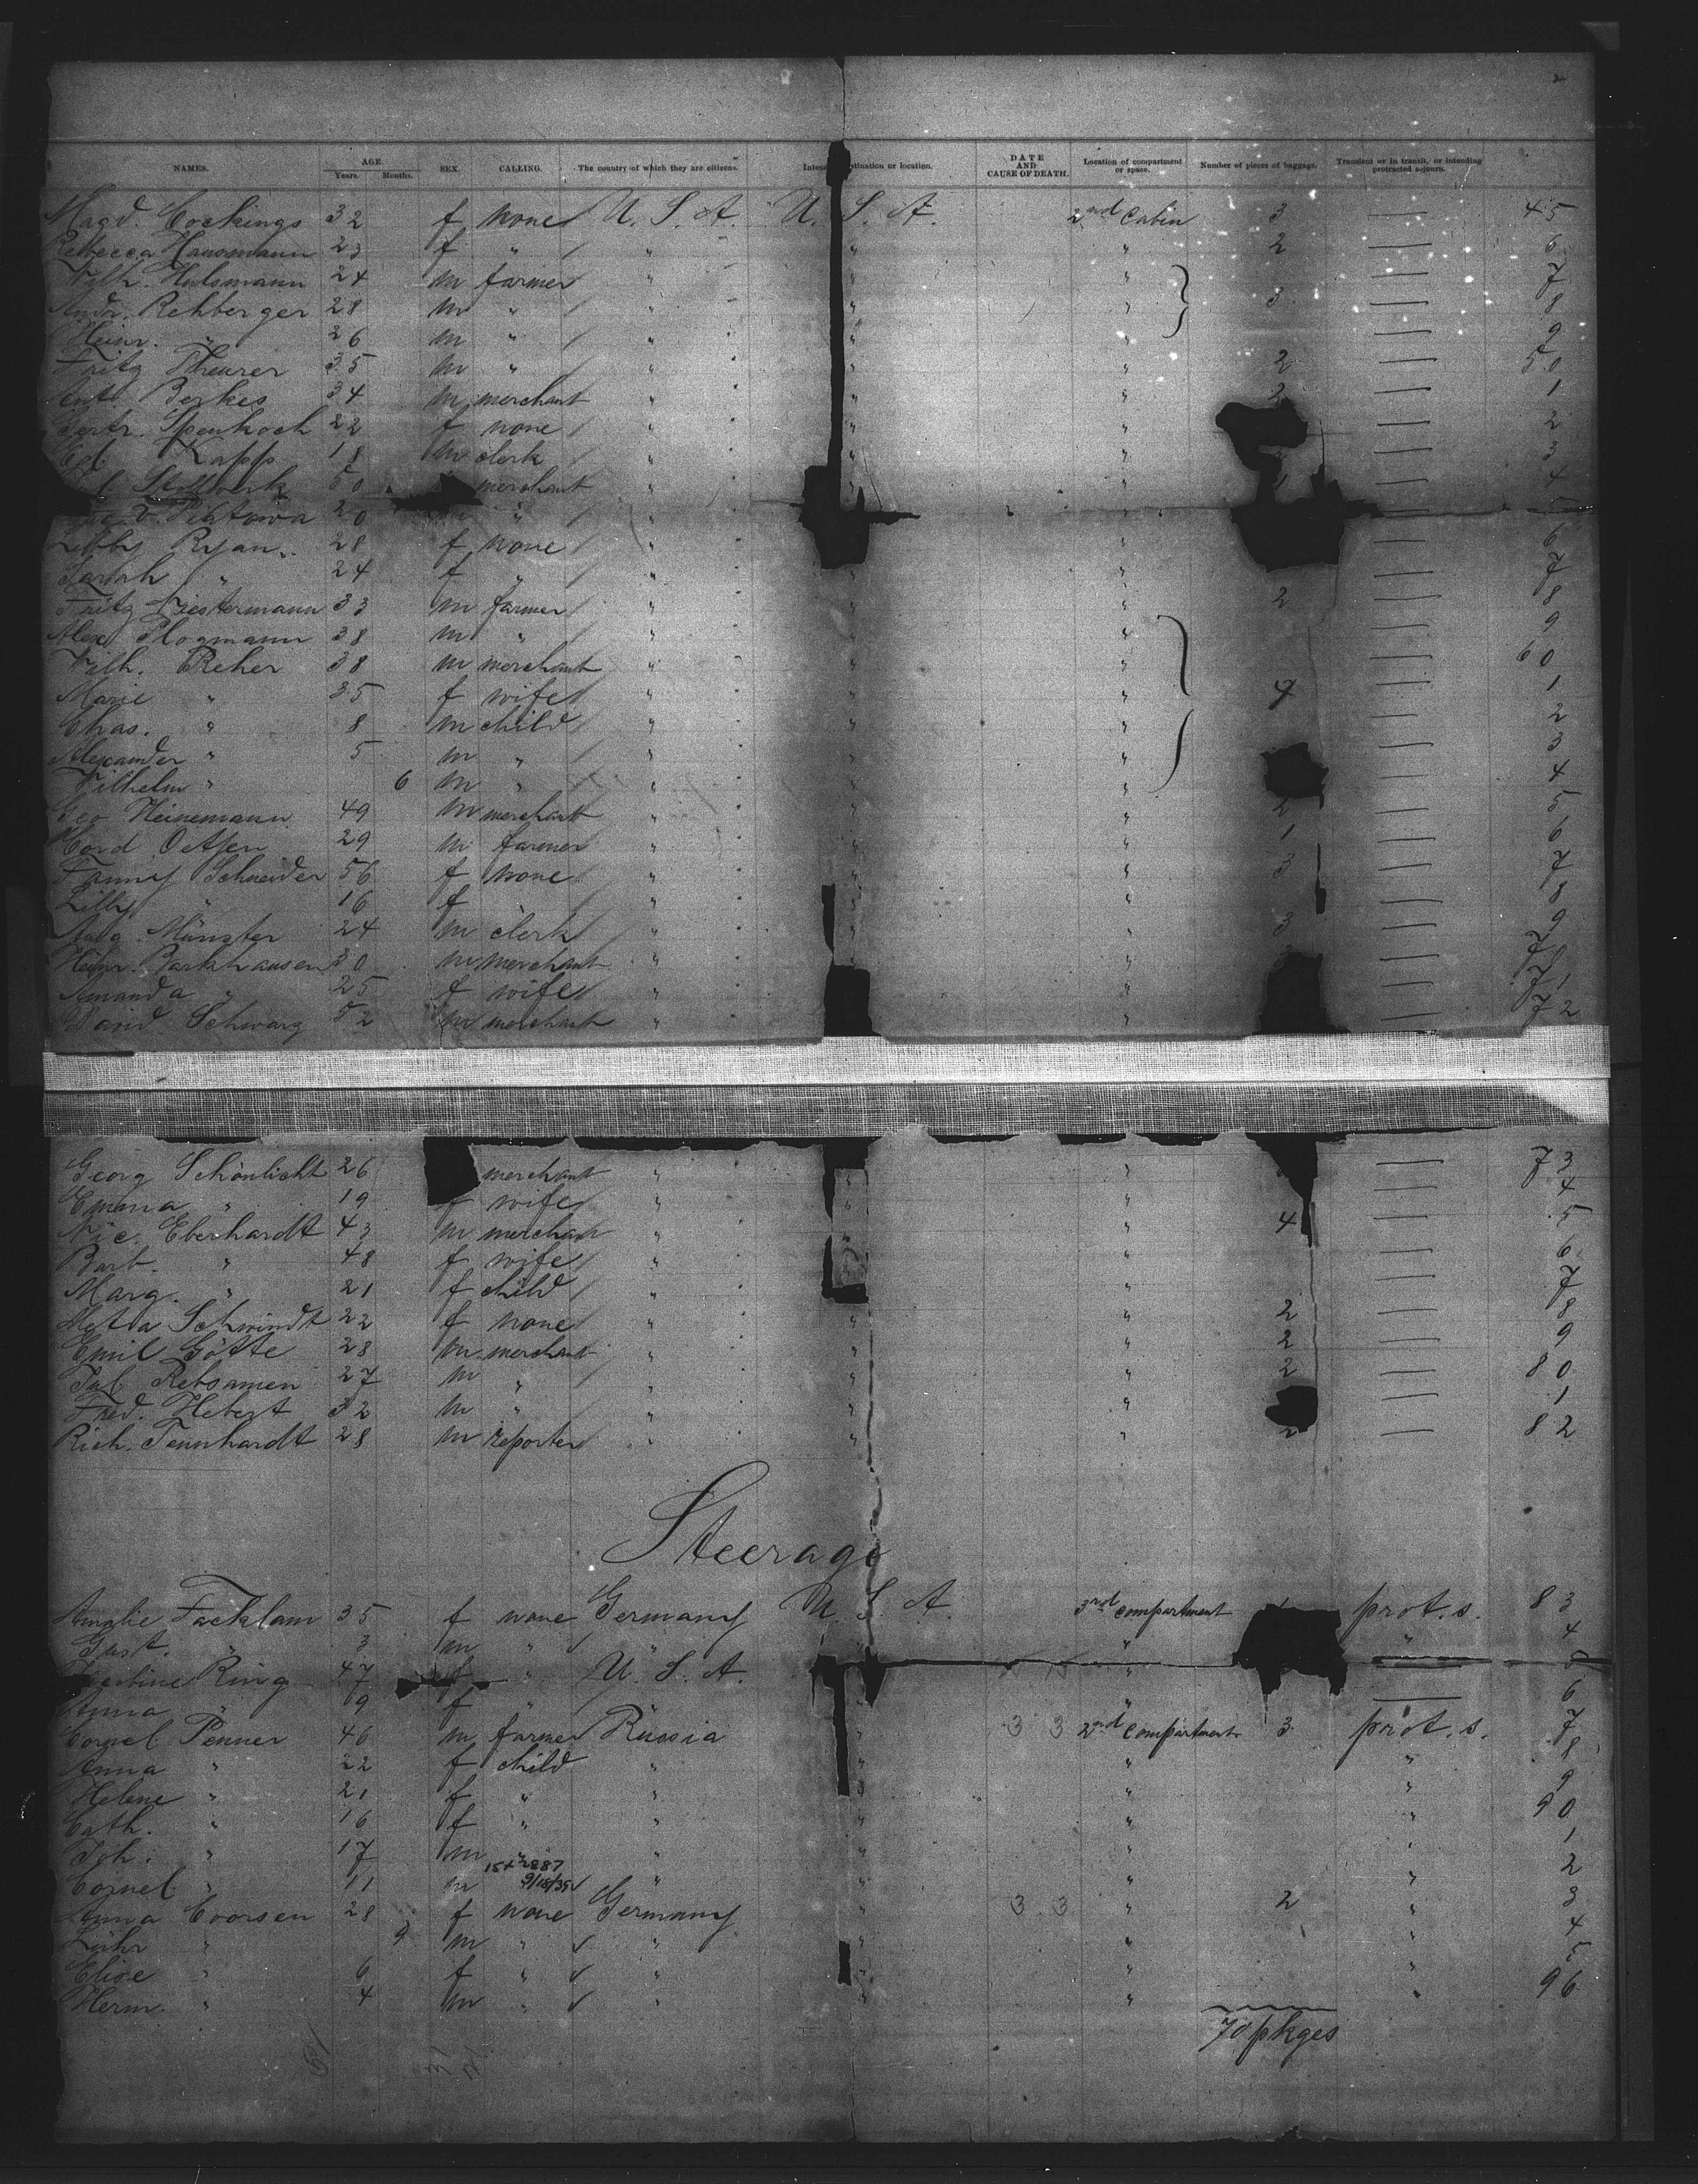 2
NAMES. AGE. Years. Months. SEX. CALLING. The country of which they are citizens. Intended destination or location. DATE AND CAUSE OF DEATH. Location of compartment or space. Number of pieces of baggage. Transient or in transit, or intending protracted sojourn.
Magd. Cockings 32 f none U. S. A. U. S. A. 2nd Cabin 3 — 45
Rebecca Hausmann 23 f " " " " 2 — 6
Wilh. Hulsmann 24 m farmer " " " — 7
Andr. Rehberger 28 m " " " " 3 — 8
Heinr. " 26 m " " " " — 9
Fritz Theurer 35 m " " " " 2 — 50
Ant. Berkes 34 m merchant " " " 2 — 1
Gertr. Spenkoch 22 f none " " " — 2
Kapp 18 m clerk " " " — 3
Stollwerk 60 merchant " " " — 4
v. Piatowa 20 " " " " —
Libby Ryan 28 f none " " " — 6
Sarah " 24 f " " " " — 7
Fritz Biestermann 33 m farmer " " " 2 — 8
Alex Plogmann 38 m " " " " — 9
Wilh. Reher 38 m merchant " " " — 60
Marie " 35 f wife " " " 4 — 1
Chas. " 8 m child " " " — 2
Alexander " 5 m " " " " — 3
Wilhelm " 6 m " " " " — 4
Geo Heinemann 49 m merchant " " " 2 — 5
Cord Oetjen 29 m farmer " " " 1 — 6
Fanny Schneider 56 f none " " " 3 — 7
Lilly " 16 f " " " " — 8
Aug. Münster 24 m clerk " " " 3 — 9
Heinr. Barkhausen 30 m merchant " " " — 70
Amanda " 25 f wife " " — 71
David Schwarz 52 m merchant " " — 72
Georg Schönlicht 26 merchant " " — 73
Emma " 19 f wife " " " — 4
Nic. Eberhardt 43 m merchant " " " 4 — 5
Barb. " 48 f wife " " — 6
Marg. " 21 f child " " — 7
Meta Schwindt 22 f none " " " 2 — 8
Emil Götte 28 m merchant " " " 2 — 9
Jul. Rebsamen 27 m " " " " 2 — 80
Fred. Hebert 32 m " " " " — 1
Rich. Tennhardt 28 m reporter " " " 2 — 82
Steerage
Amalie Facklam 35 f none Germany U. S. A. 3rd compartment prot. s. 83
Gust. " 3 m " " " " " 4
Ring 47 f " U. S. A. " —
Anna " 9 f " " " — 6
Cornel Penner 46 m farmer Russia " 3 3 2nd compartment 3 prot. s. 7
Anna " 22 f child " " " " 8
Helene " 21 f " " " " " 9
Cath. " 16 f " " " " " 90
Joh. " 17 m " " " " " 1
9/18/39
Cornel " 11 m " " " " 2
Anna Coorsen 28 f none Germany " 3 3 " 2 " 3
Lühr " 9 m " " " " " 4
Elise " 6 f " " " " " 5
Herm. " 4 m " " " " " 96
70 pkges